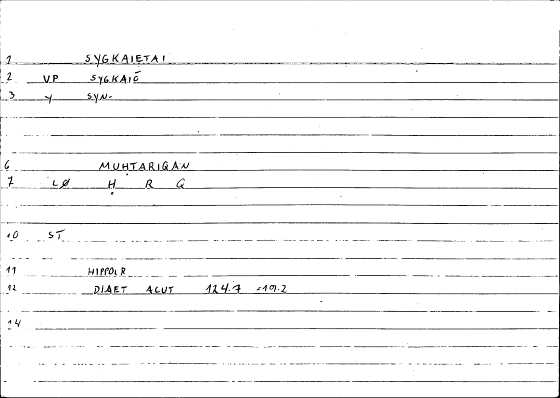 1 SYGKAIETAI
2 VP SYGKAIĒ
3 Y SYN-
6 MUHTARIQAN
7 LØ Ḥ R Q
10 ST
11 HIPPOKR
12 DIAET ACUT 124.7 =19.2
14